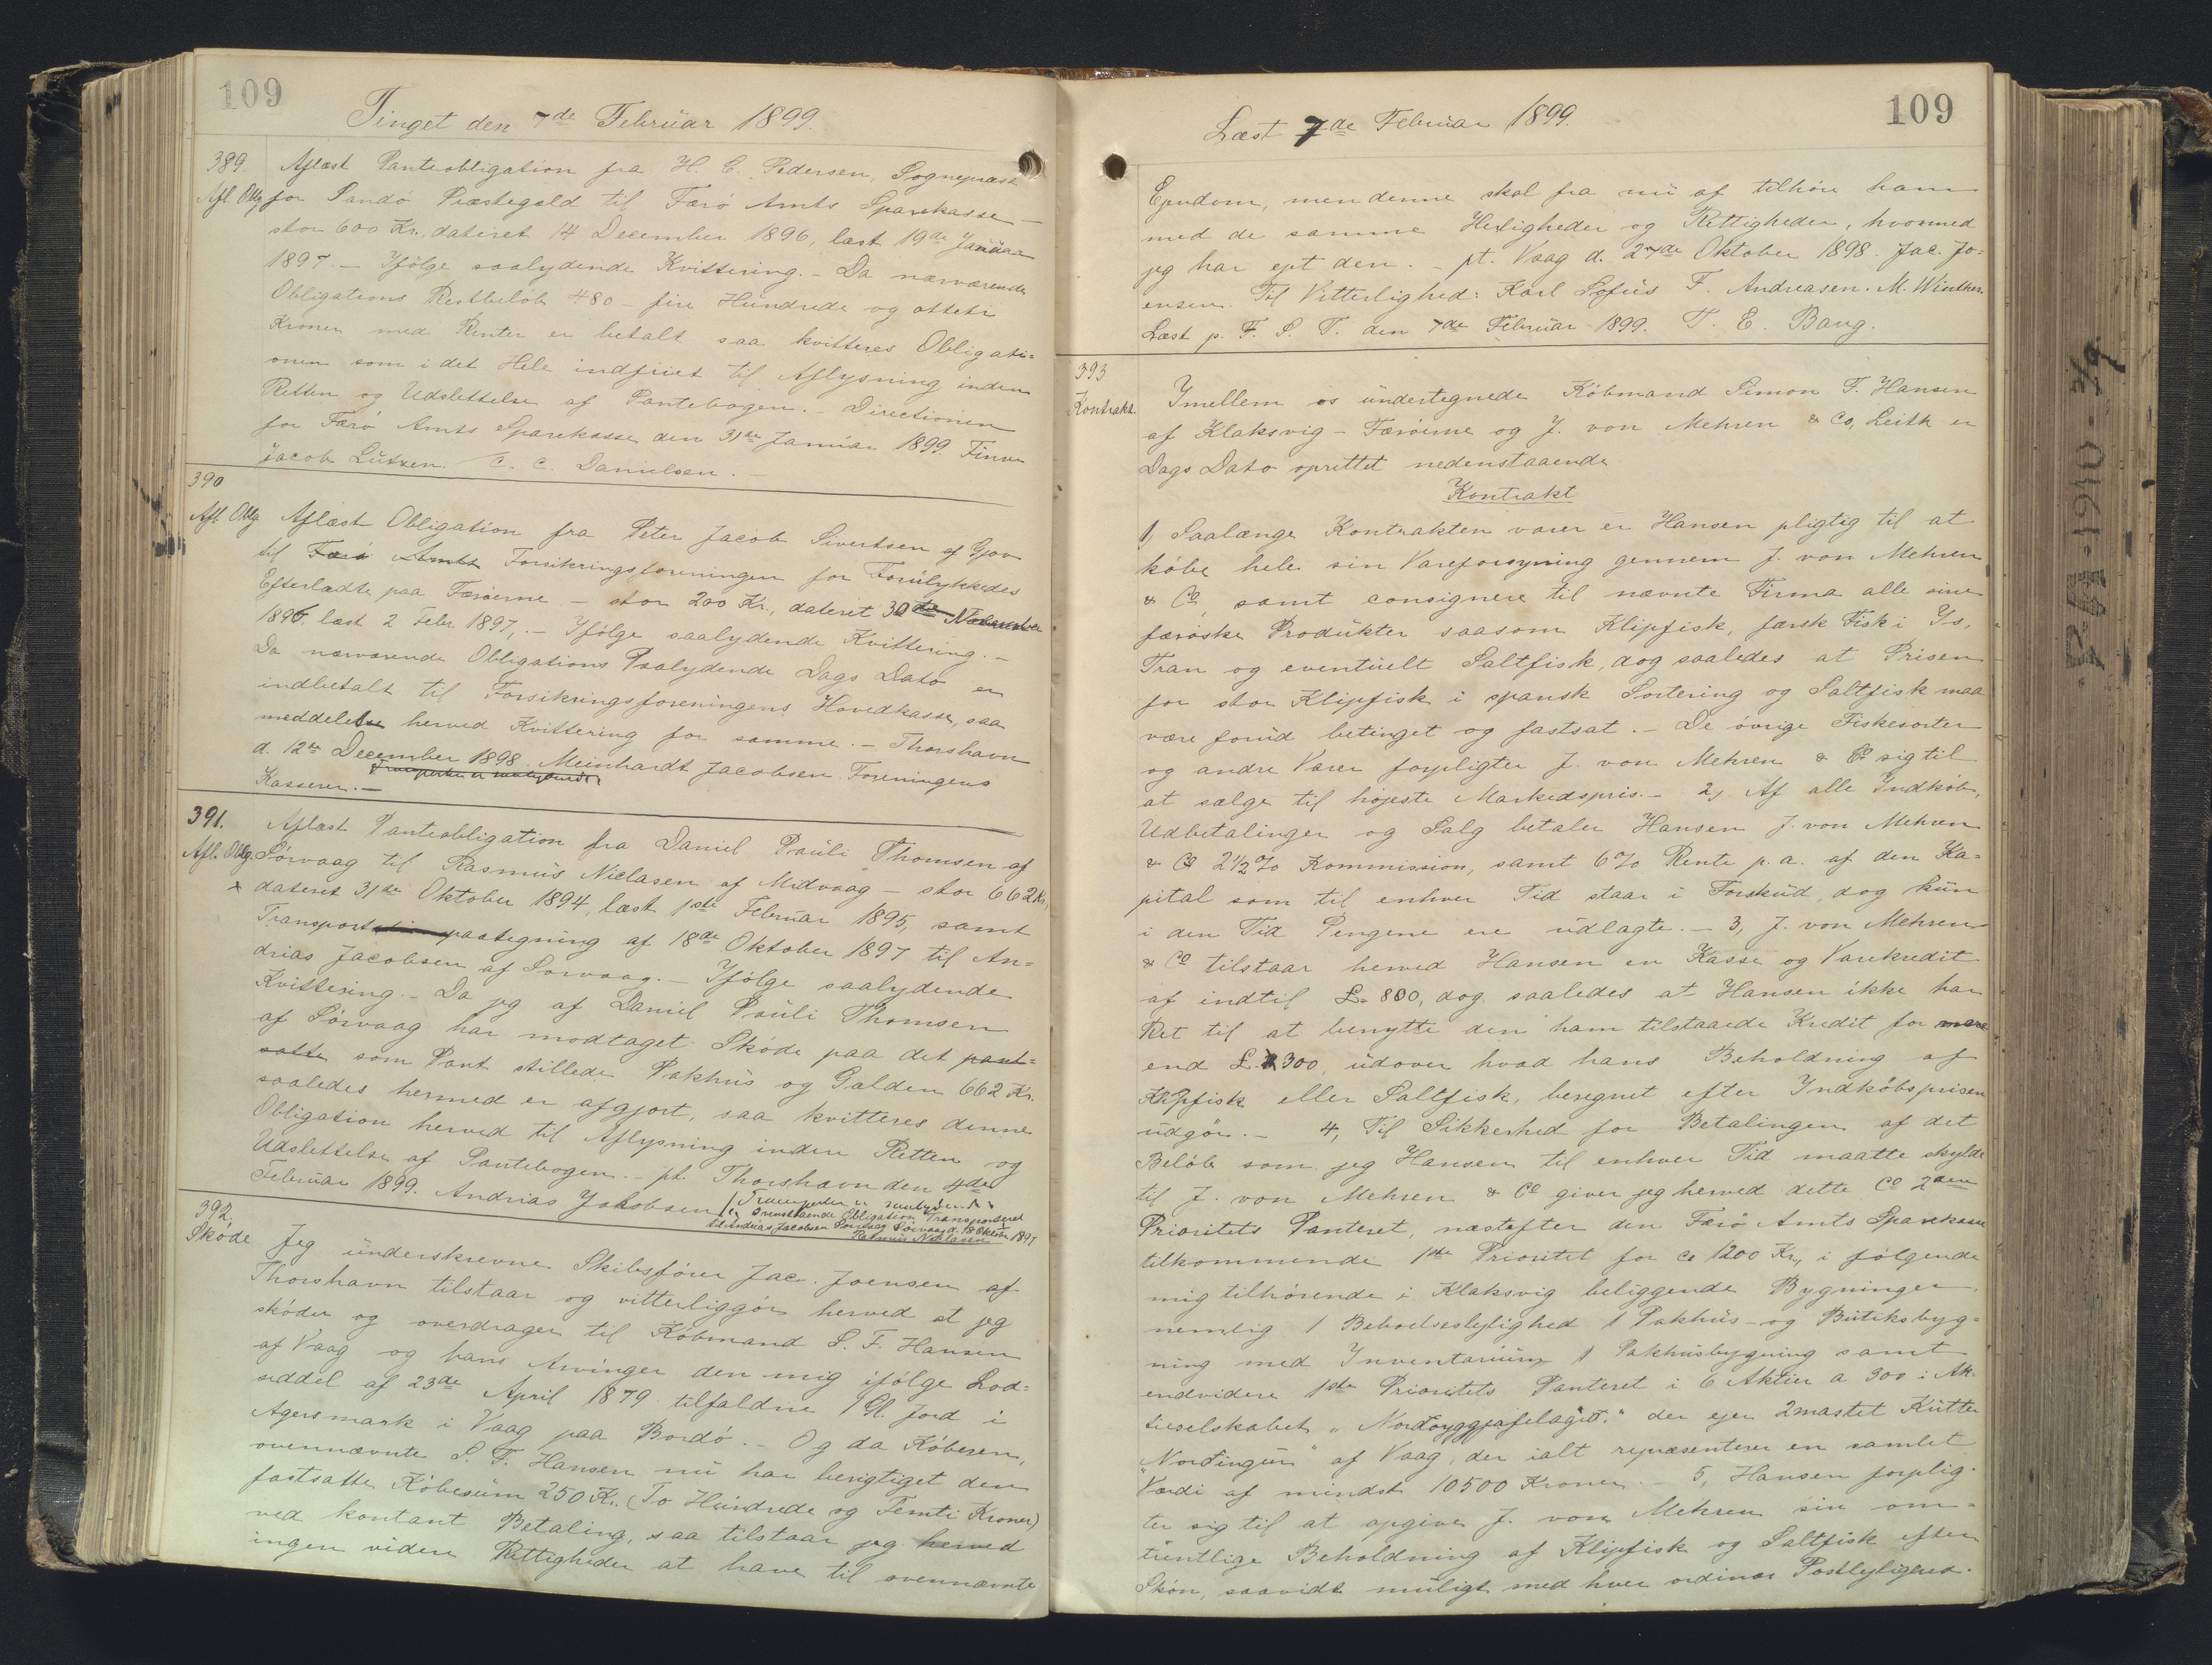 109
Tinget den 7de Februar 1899.
389. Aflæst Panteobligation fra H. C. Pedersen, Sognepræst
Afl. Oblg. for Sandö Præstegæld til Færö Amts Sparekasse —
stor 600 Kr., dateret 14 December 1896, læst 19de Januar
1897. — Ifölge saalydende Kvittering. — Da nærværende
Obligations Restbelöb 480 — fire Hundrede og otteti
Kroner med Renter er betalt saa kvitteres Obligati=
onen som i det Hele indfriet til Aflysning inden
Retten og Udslettelse af Pantebogen. — Directionen
for Færö Amts Sparekasse den 31te Januar 1899. Finne
Jacob Lützen. C. C. Danielsen.
390
Afl. Oblg. Aflæst Obligation fra Peter Jacob Sivertsen af Gjov
til Færö Amts Forsikringsforeningen for Forulykkedes
Efterladte paa Færöerne — stor 200 Kr., dateret 30te November
1896, læst 2 Febr. 1897, — Ifölge saalydende Kvittering. —
Da nærværende Obligations Paalydende Dags Dato er
indbetalt til Forsikringsforeningens Hovedkasse, saa
meddeles herved Kvittering for samme. — Thorshavn
d. 12te December 1898. Meinhardt Jacobsen Foreningens
Transporten er saalydende
Kasserer. —
391. Aflæst Panteobligation fra Daniel Pauli Thomsen af
Afl. Oblg. Sörvaag til Rasmus Nielasen af Midvaag — stor 662 Kr,
x dateret 31te Oktober 1894, læst 1ste Februar 1895, samt
Transport paategning af 18de Oktober 1897 til An=
drias Jacobsen af Sörvaag. — Ifölge saalydende
Kvittering. — Da jeg af Daniel Pauli Thomsen
af Sörvaag har modtaget Sköde paa det pant=
satte som Pant stillede Pakhus og Gælden 662 Kr.
saaledes hermed er afgjort, saa kvitteres denne
Obligation herved til Aflysning inden Retten og
Udslettelse af Pantebogen. — pt. Thorshavn den 4de
Februar 1899. Andrias Jakobsen (Transporten er saalydende
Ovenstaaende Obligation Transporteret
til Andrias Jacobsen Sörvaag Sörvaag d. 18 Oktober 1897
Rasmus Nielasen
392.
Sköde Jeg underskrevne Skibsförer Jac. Joensen af
Thorshavn tilstaar og vitterliggör herved at jeg
sköder og overdrager til Köbmand S. F. Hansen
af Vaag og hans Arvinger den mig ifölge Lod=
seddel af 23de April 1879 tilfaldne 1 Gl. Jord i
Agersmark i Vaag paa Bordö. — Og da Köberen,
ovennævnte S. F. Hansen nu har berigtiget den
fastsatte Köbesum 250 Kr. (To Hundrede og Femti Kroner)
ved kontant Betaling, saa tilstaar jeg herved
ingen videre Rettigheder at have til ovennævnte
109
Læst 7de Februar 1899.
Ejendom, men denne skal fra nu af tilhöre ham
med de samme Herligheder og Rettigheder, hvormed
jeg har ejet den. — pt. Vaag d. 27de Oktober 1898. Jac. Jo=
ensen. Til Vitterlighed: Karl Lofus F. Andreasen. M. Winther.
Læst p. F. S. T. den 7de Februar 1899. T. E. Bang.
393
Kontrakt. Imellem os undertegnede Köbmand Simon F. Hansen
af Klaksvig — Færöerne og J. von Mehren & Co, Leith er
Dags Dato oprettet nedenstaaende
Kontrakt
1, Saalænge Kontrakten varer er Hansen pligtig til at
köbe hele sin Vareforsyning gennem J. von Mehren
& Co, samt consignere til nævnte Firma alle sine
færöske Produkter saasom Klipfisk, færsk Fisk i Is,
Tran og eventuelt Saltfisk, dog saaledes at Prisen
for stor Klipfisk i spansk Sortering og Saltfisk maa
være forud betinget og fastsat. — De övrige Fiskesorter
og andre Varer forpligter J. von Mehren & Co sig til
at sælge til højeste Markedspris. — 2, Af alle Indköb,
Udbetalinger og Salg betaler Hansen J. von Mehren
& Co 2½ % Kommission, samt 6% Rente p. a. af den Ka=
pital som til enhver Tid staar i Forskud, dog kun
i den Tid Pengene ere udlagte. — 3, J. von Mehren
& Co tilstaar herved Hansen en Kasse og Varekredit
af indtil £ 800, dog saaledes at Hansen ikke har
Ret til at benytte den ham tilstaaede Kredit for mere
end £ 300, udover hvad hans Beholdning af
Klipfisk eller Saltfisk, beregnet efter Indköbsprisen
udgör. — 4, Til Sikkerhed for Betalingen af det
Belöb som jeg Hansen til enhver Tid maatte skylde
til J. von Mehren & Co giver jeg herved dette Co 2den
Prioritets Panteret, næstefter den Færö Amts Sparekasse
tilkommende 1ste Prioritet for ca 1200 Kr., i fölgende
mig tilhörende i Klaksvig beliggende Bygninger,
nemlig 1 Beboelseslejlighed 1 Pakhus- og Butiksbyg=
ning med Inventarium 1 Pakhusbygning samt
endvidere 1ste Prioritets Panteret i 6 Aktier a 300 i Ak=
tieselskabet „Nordoyggjafelagid“ der ejer 2mastet Kutter
„Nordingur“ af Vaag, der ialt repræsenterer en samlet
Værdi af mindst 10500 Kroner. — 5, Hansen forplig=
ter sig til at opgive J. von Mehren sin om=
trentlige Beholdning af Klipfisk og Saltfisk efter
Skön, saavidt muligt med hver ordinær Postlejlighed.